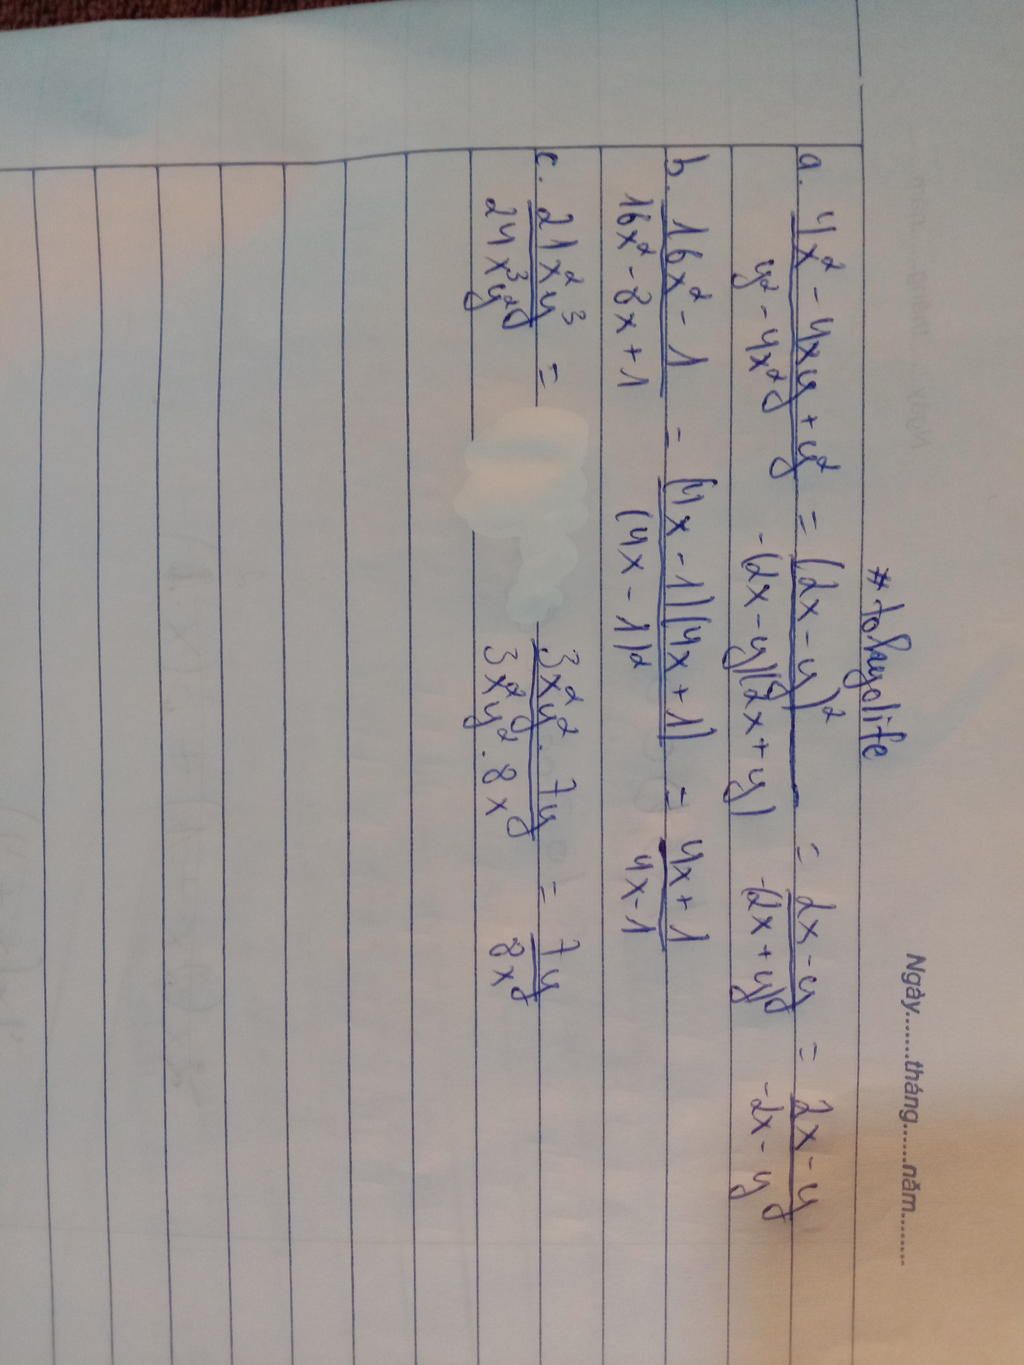 Ngày.......tháng......năm........
# tokyolife
a. 4x² - 4xy + y² / y² - 4x² = (2x - y)² / -(2x - y)(2x + y) = 2x - y / -(2x + y) = 2x - y / -2x - y
b. 16x² - 1 / 16x² - 8x + 1 = (4x - 1)(4x + 1) / (4x - 1)² = 4x + 1 / 4x - 1
c. 21x²y³ / 24x³y² = 3x²y² . 7y / 3x²y² . 8x = 7y / 8x